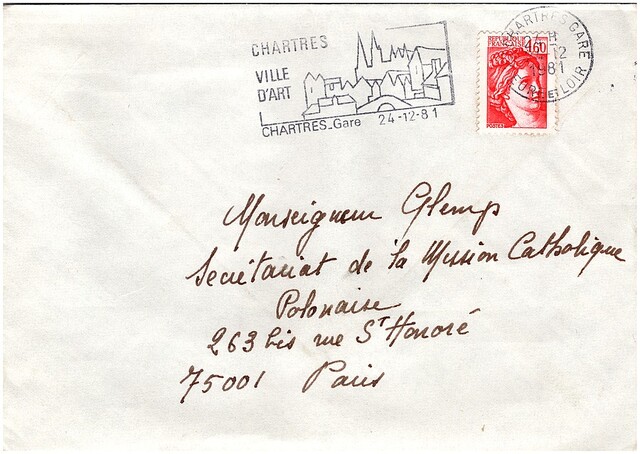 CHARTRES
VILLE
D'ART
CHARTRES-Gare 24-12-81
CHARTRES GARE
12
1981
EURE-ET-LOIR
1,60
POSTES
Monseigneur Glemp
Secrétariat de la Mission Catholique
Polonaise
263 bis rue St Honoré
75001 Paris